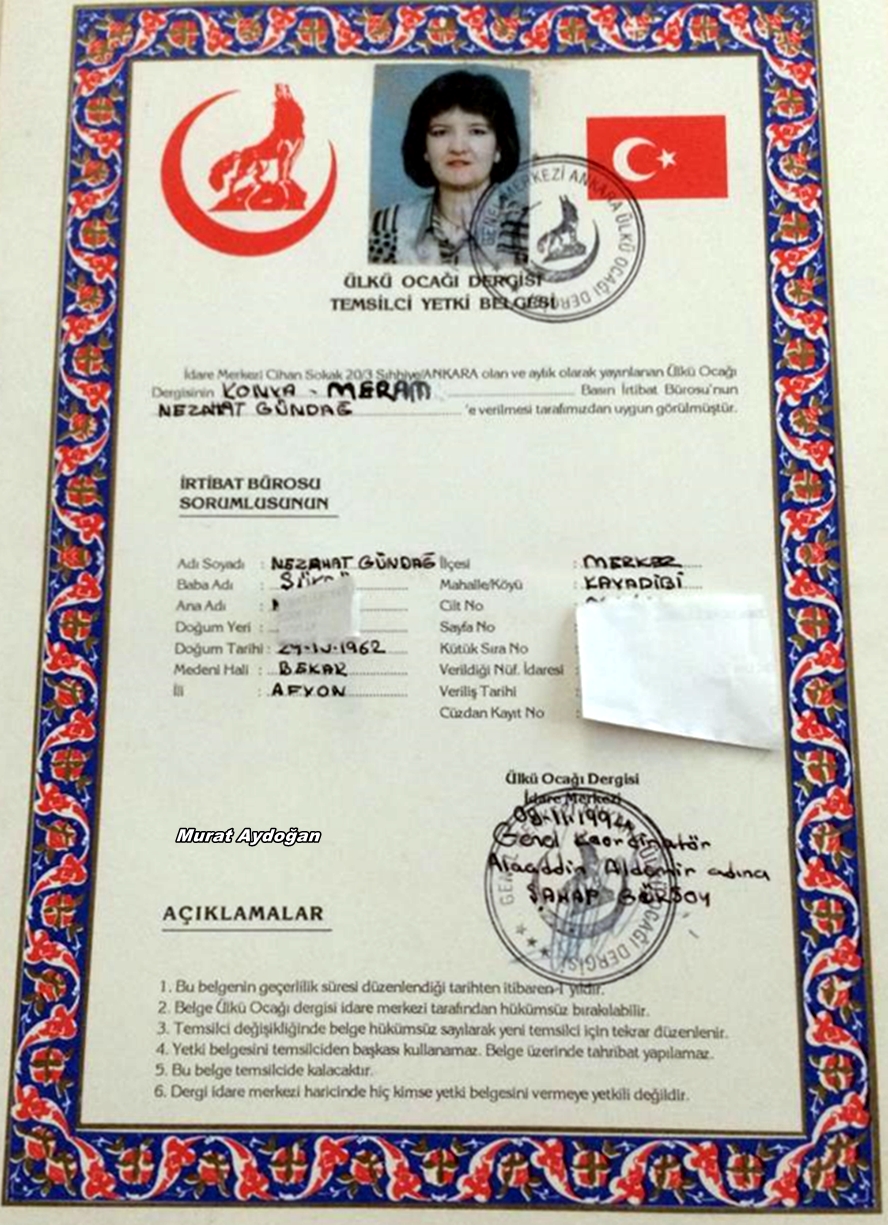 GENEL MERKEZİ ANKARA ÜLKÜ OCAĞI DERGİSİ
ÜLKÜ OCAĞI DERGİSİ
TEMSİLCİ YETKİ BELGESİ
İdare Merkezi Cihan Sokak 20/3 Sıhhiye/ANKARA olan ve aylık olarak yayınlanan Ülkü Ocağı
Dergisinin KONYA - MERAM Basın İrtibat Bürosu'nun
NEZAHAT GÜNDAĞ 'e verilmesi tarafımızdan uygun görülmüştür.
İRTİBAT BÜROSU
SORUMLUSUNUN
Adı Soyadı : NEZAHAT GÜNDAĞ İlçesi : MERKEZ
Baba Adı : Mahalle/Köyü : KAYADİBİ
Ana Adı : Cilt No
Doğum Yeri : Sayfa No
Doğum Tarihi : Kütük Sıra No
Medeni Hali : BEKAR Verildiği Nüf. İdaresi :
İli : AFYON Veriliş Tarihi :
Cüzdan Kayıt No :
Ülkü Ocağı Dergisi
İdare Merkezi
Genel Koordinatör
Alaaddin Aldemir adına
ŞAHAP GÜRSOY
Murat Aydoğan
AÇIKLAMALAR
1. Bu belgenin geçerlilik süresi düzenlendiği tarihten itibaren 1 yıldır.
2. Belge Ülkü Ocağı dergisi idare merkezi tarafından hükümsüz bırakılabilir.
3. Temsilci değişikliğinde belge hükümsüz sayılarak yeni temsilci için tekrar düzenlenir.
4. Yetki belgesini temsilciden başkası kullanamaz. Belge üzerinde tahribat yapılamaz.
5. Bu belge temsilcide kalacaktır.
6. Dergi idare merkezi haricinde hiç kimse yetki belgesini vermeye yetkili değildir.